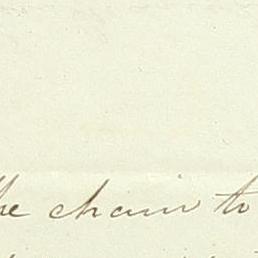 he chain to